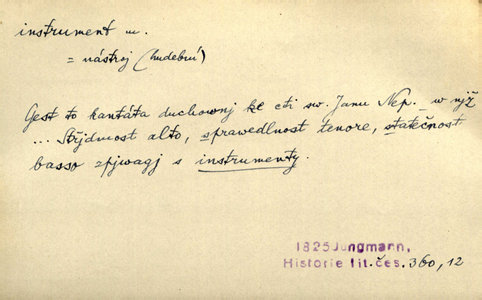 instrument m.
= nástroj (hudební)
Gest to kantáta duchownj ke cti sw. Janu Nep. – w njž
... Střjdmost alto, sprawedlnost tenore, statečnost
basso zpjwagj s instrumenty.
1825 Jungmann,
Historie lit. čes. 360, 12